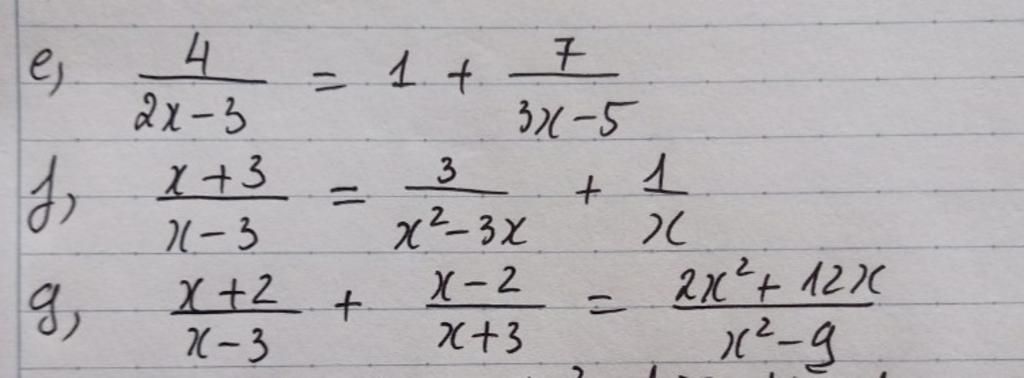 e, 4/(2x-3) = 1 + 7/(3x-5)
f, (x+3)/(x-3) = 3/(x²-3x) + 1/x
g, (x+2)/(x-3) + (x-2)/(x+3) = (2x²+12x)/(x²-9)